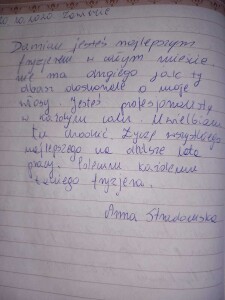 Damian jesteś najlepszym
fryzjerem w całym mieście
nie ma drugiego jak ty
dbasz doskonale o moje
włosy. Jesteś profesjonalistą
w każdym calu. Uwielbiam
tu chodzić Życzę wszystkiego
najlepszego na dalsze lata
pracy. Polecam każdemu
takiego fryzjera.
Anna